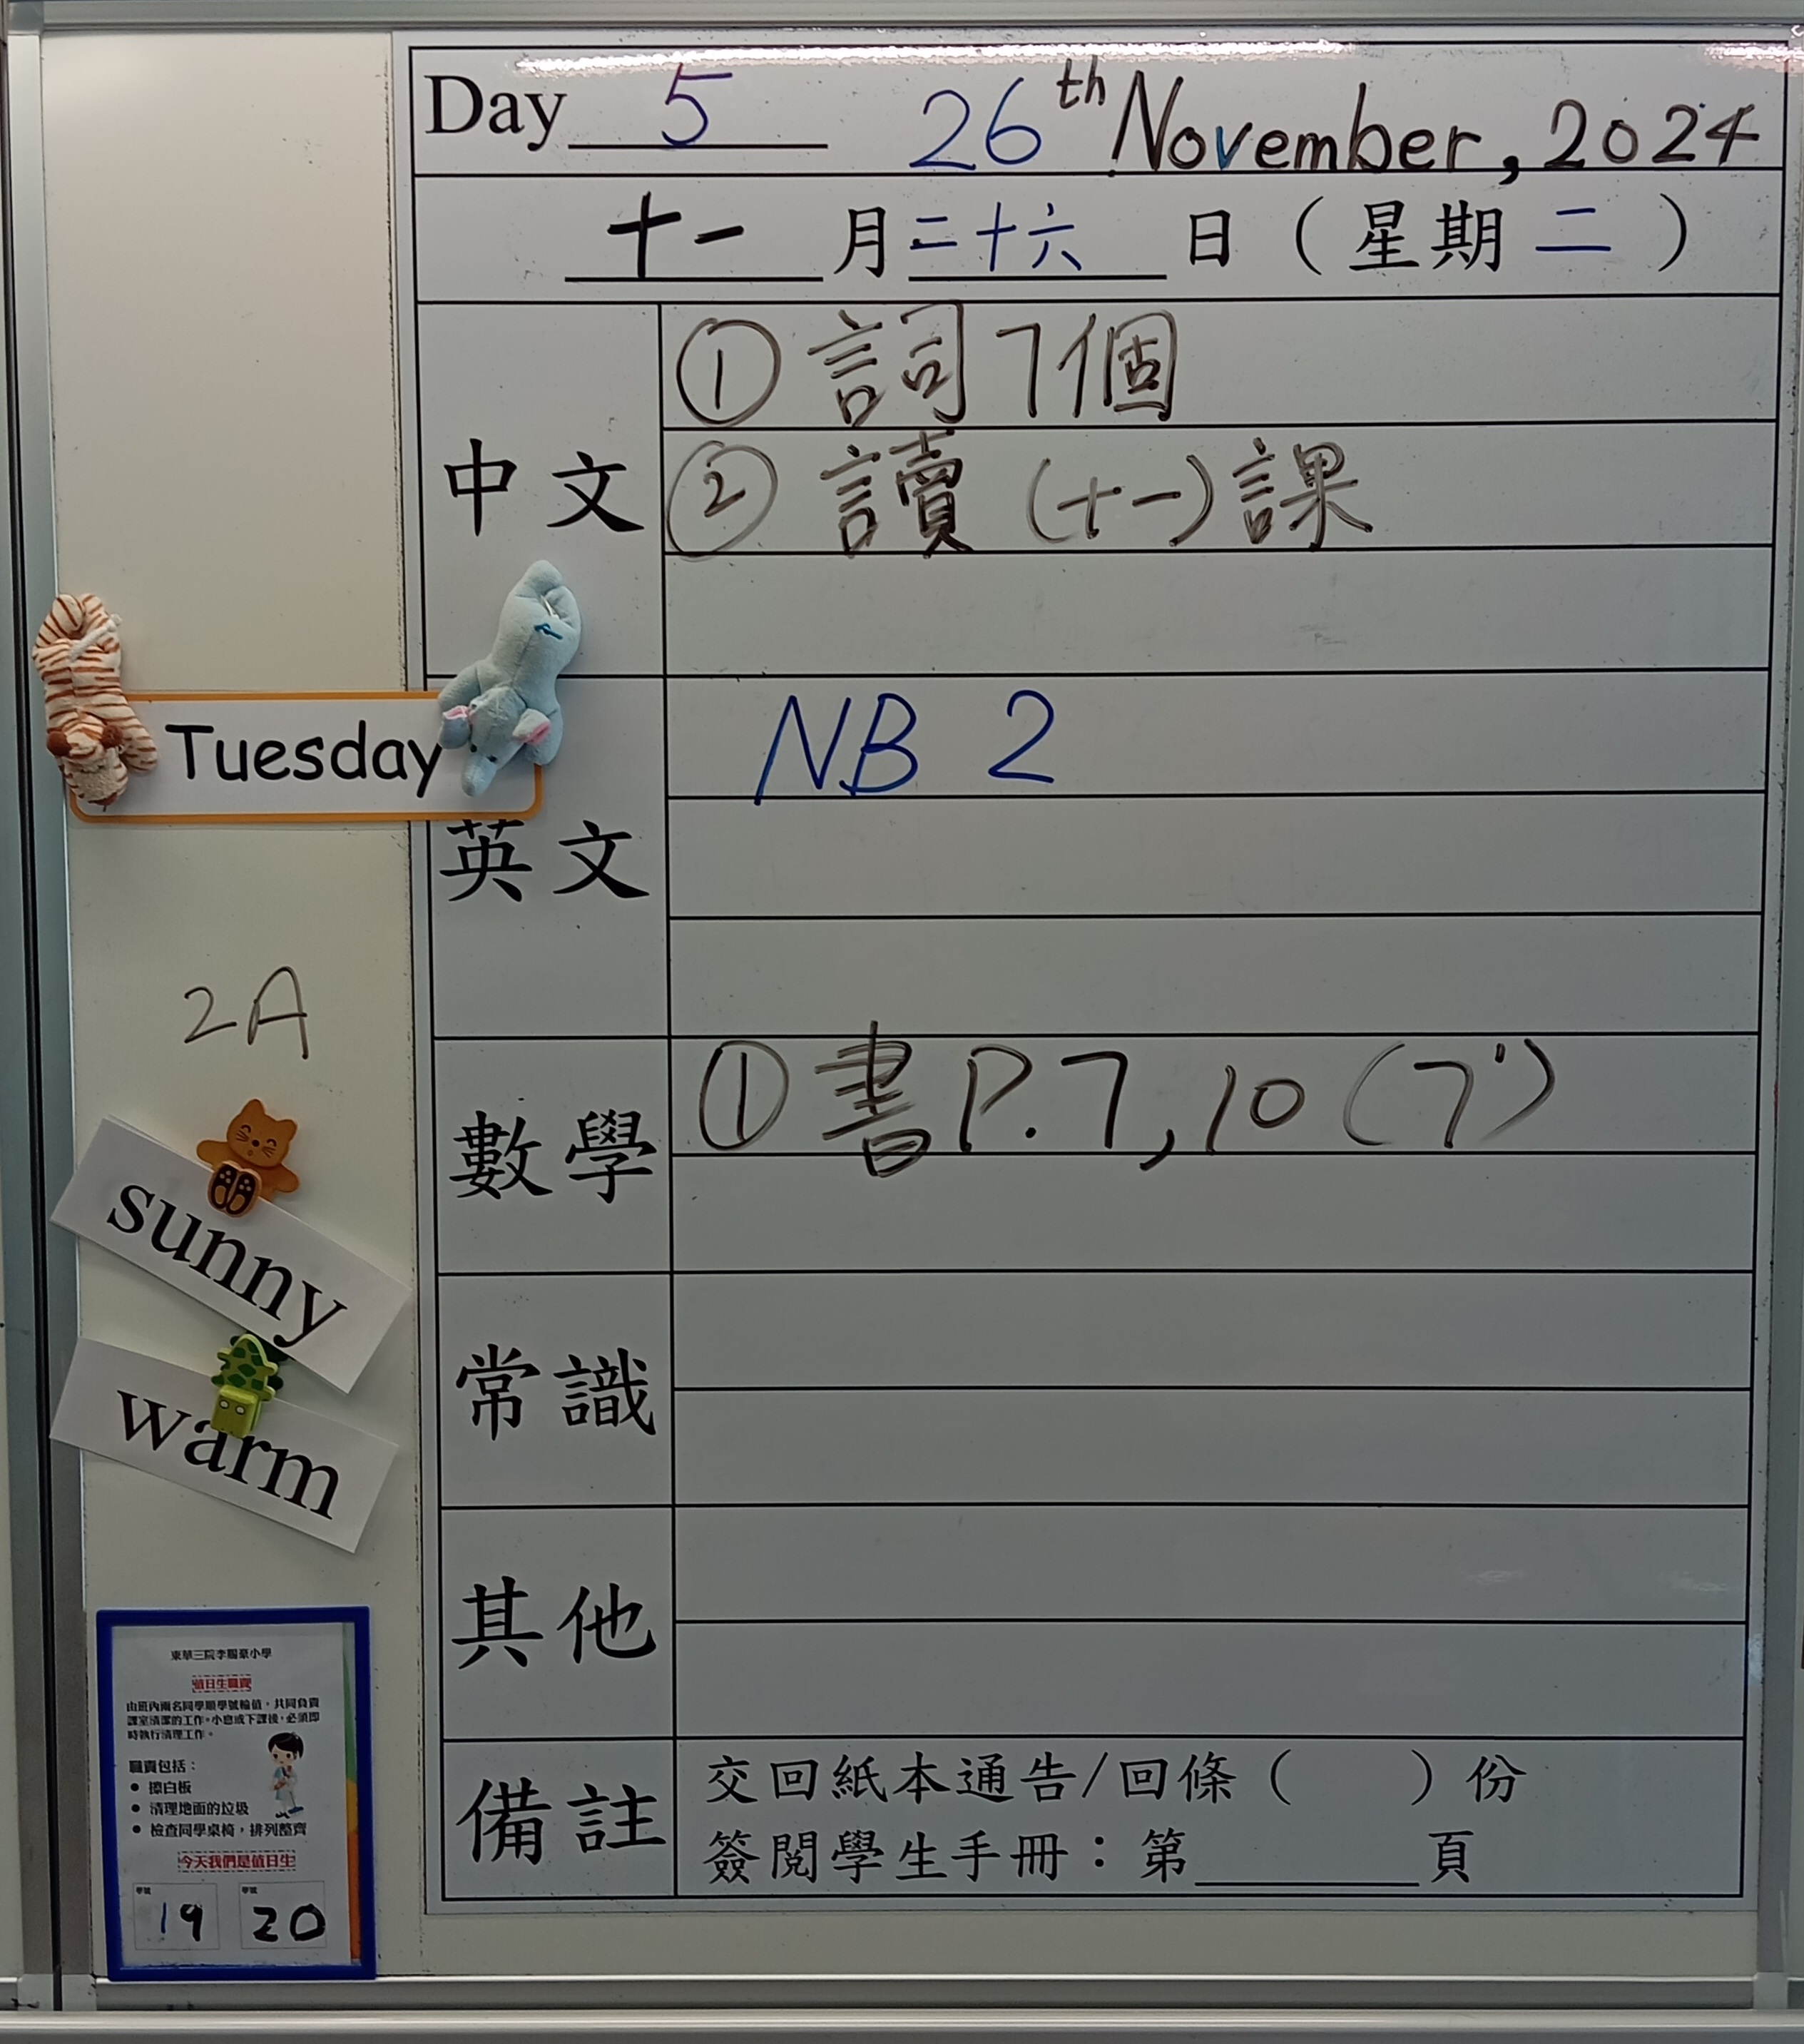 Day 5 26th November, 2024
十一月二十六日(星期二)
中文
① 詞7個
② 讀(十一)課
Tuesday
英文
NB 2
2A
數學
① 書P.7,10(7')
sunny
warm
常識
其他
備註
交回紙本通告/回條( )份
簽閱學生手冊:第______頁
東華三院李賜豪小學
值日生職責
由班內兩名同學順學號輪值,共同負責
課室清潔的工作。小息或下課後,必須即
時執行清理工作。
職責包括:
● 擦白板
● 清理地面的垃圾
● 檢查同學桌椅,排列整齊
今天我們是值日生
學號 學號
19 20